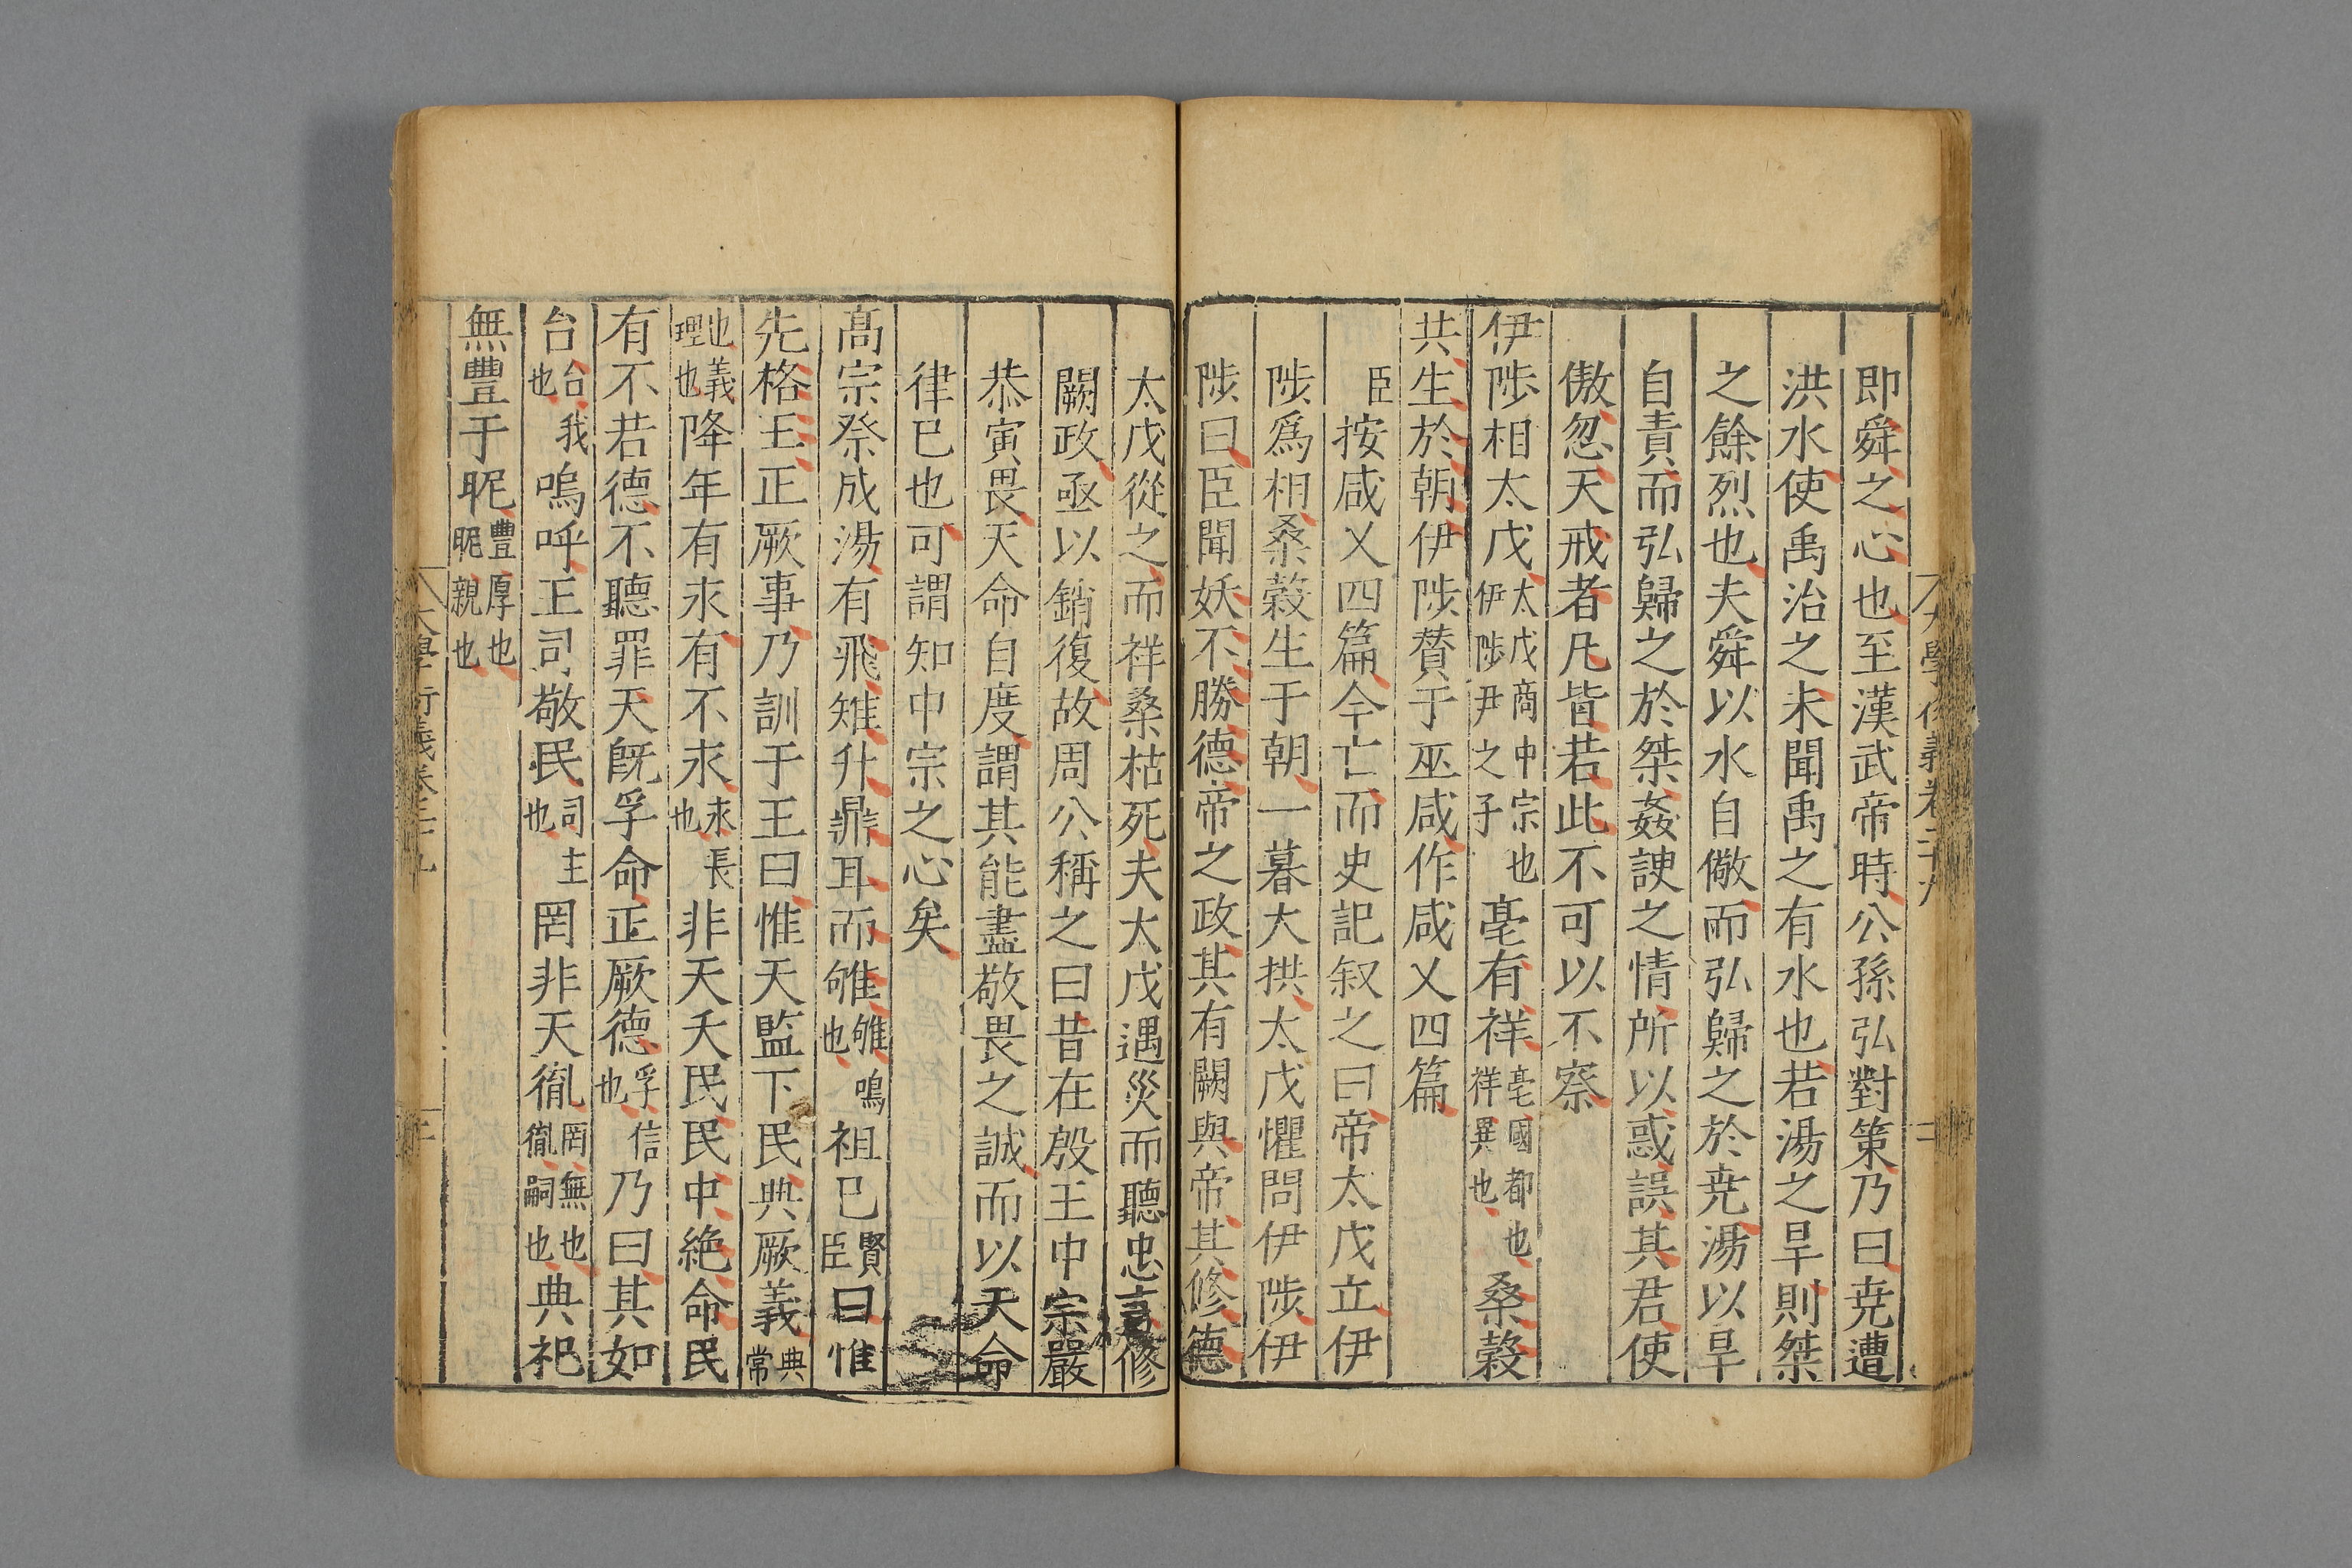 即舜之心也至漢武帝時公孫弘對策乃曰尭遭
洪水使禹治之未聞禹之有水也若湯之旱則桀
之餘烈也夫舜以水自儆而弘歸之於尭湯以旱
自責而弘歸之於桀姦諛之情所以惑誤其君使
傲忽天戒者凡皆若此不可以不察
伊陟相太戊太戊商中宗也伊陟尹之子亳有祥亳國都也祥異也桑榖
共生於朝伊陟賛于巫咸作咸乂四篇
臣按咸乂四篇今亡而史記叙之曰帝太戊立伊
陟爲相桑榖生于朝一暮大拱太戊懼問伊陟伊
陟曰臣聞妖不勝德帝之政其有闕與帝其修德
太戊從之而祥桑枯死夫太戊遇災而聽忠言修
闕政亟以銷復故周公稱之曰昔在殷王中宗嚴
恭寅畏天命自度謂其能盡敬畏之誠而以天命
律已也可謂知中宗之心矣
髙宗祭成湯有飛雉升鼎耳而雊雊鳴也祖已賢臣曰惟
先格王正厥事乃訓于王曰惟天監下民典厥義典常
也義理也降年有永有不永永長也非天夭民民中絶命民
有不若德不聽罪天旣孚命正厥德孚信也乃曰其如
台台我也嗚呼王司敬民司主也罔非天胤罔無也胤嗣也典祀
無豐于昵豐厚也昵親也